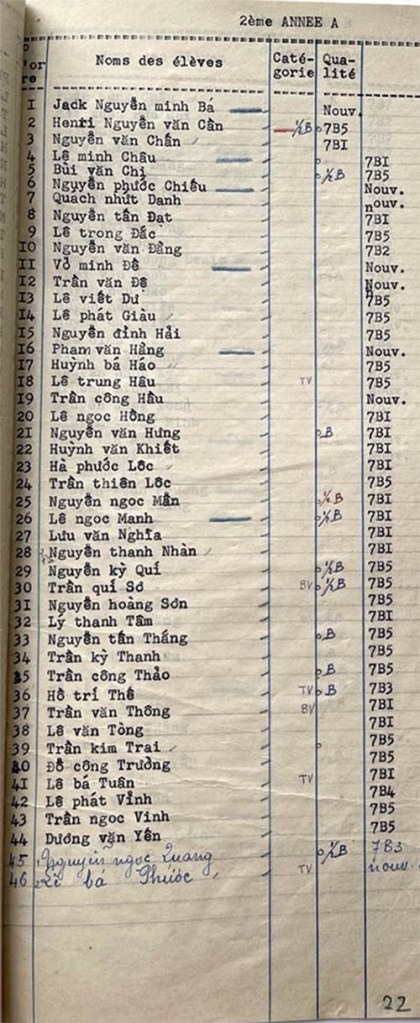 2ème ANNEE A
Noms des élèves Caté-gorie Qua-lité
I Jack Nguyễn minh Bá Nouv.
2 Henri Nguyễn văn Cần ½B 7B5
3 Nguyễn văn Chấn 7BI
4 Lê minh Châu 7BI
5 Bùi văn Chi ½B 7B5
6 Nguyễn phước Chiếu Nouv.
7 Quách nhứt Danh nouv.
8 Nguyễn tấn Đạt 7BI
9 Lê trong Đắc 7B5
IO Nguyễn văn Đằng 7B2
II Võ minh Đề Nouv.
I2 Trần văn Đệ Nouv.
I3 Lê viết Dư 7B5
I4 Lê phát Giàu 7B5
I5 Nguyễn đình Hải 7B5
I6 Phạm văn Hằng Nouv.
I7 Huỳnh bá Hảo 7B5
I8 Lê trung Hậu TV 7B5
I9 Trần công Hậu Nouv.
20 Lê ngọc Hồng 7BI
2I Nguyễn văn Hưng B 7BI
22 Huỳnh văn Khiết 7BI
23 Hà phước Lộc 7BI
24 Trần thiên Lộc 7B5
25 Nguyễn ngọc Mẫn ½B 7BI
26 Lê ngọc Mạnh ½B 7BI
27 Lưu văn Nghĩa 7BI
28 Nguyễn thanh Nhàn 7BI
29 Nguyễn kỳ Quí ½B 7B5
30 Trần quí Sơ BV ½B 7B5
3I Nguyễn hoàng Sơn 7B5
32 Lý thanh Tâm 7BI
33 Nguyễn tấn Thắng B 7B5
34 Trần kỳ Thanh 7B5
35 Trần công Thảo B 7B5
36 Hồ trí Thê TV B 7B3
37 Trần văn Thông BV 7BI
38 Lê văn Tòng 7BI
39 Trần kim Trai 7B5
40 Đỗ công Trường 7B5
4I Lê bá Tuân TV 7BI
42 Lê phát Vĩnh 7B4
43 Trần ngọc Vinh 7B5
44 Dương văn Yến 7B5
45 Nguyễn ngọc Quang ½B 7B3
46 Lê bá Phước TV nouv.
22